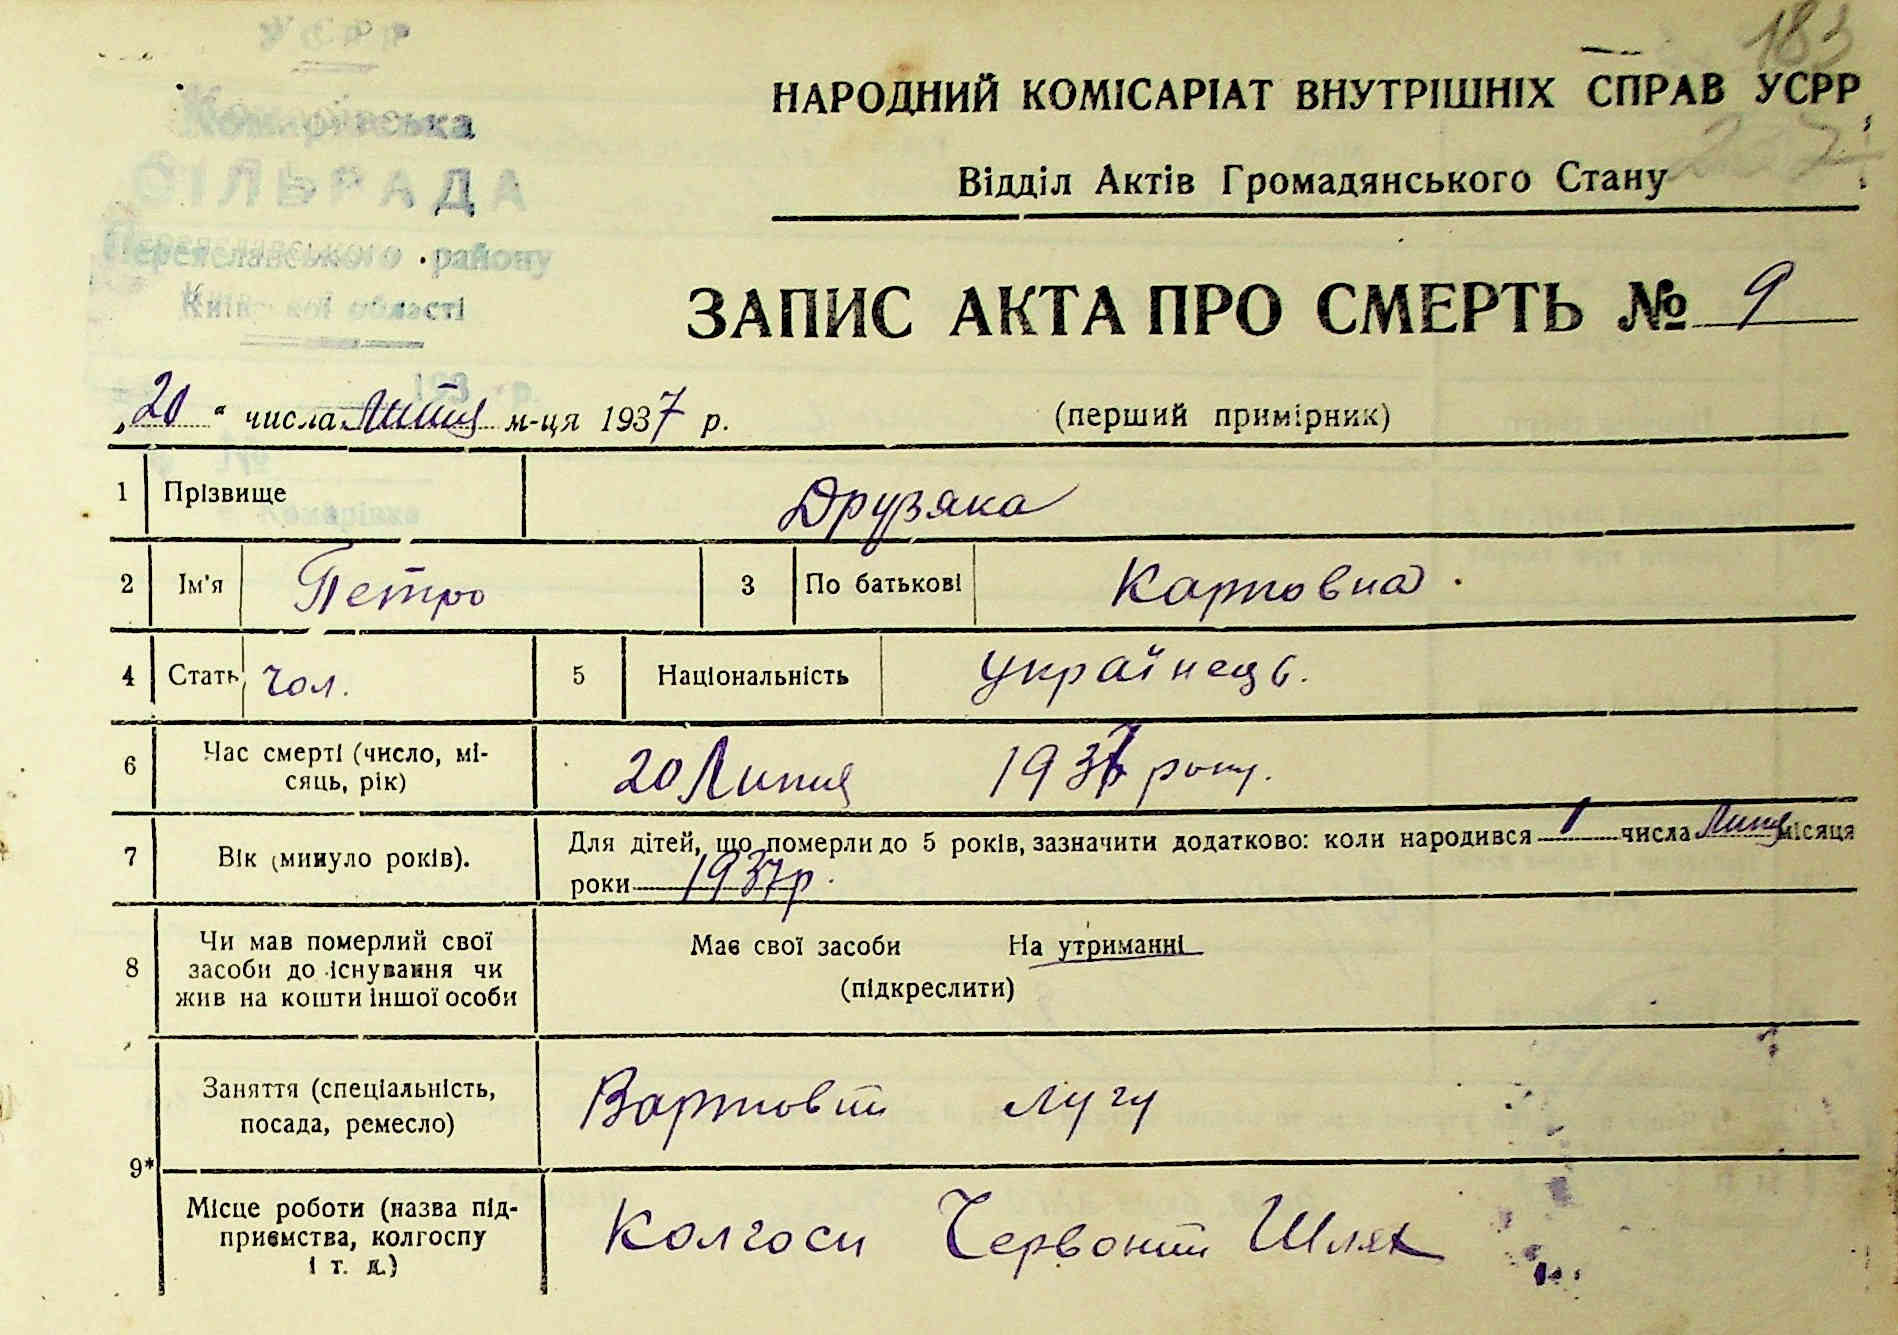 УСРР
Комарівська
СІЛЬРАДА
Переяславського району
Київської області
193 р.
№
Комарівка
183
НАРОДНИЙ КОМІСАРІАТ ВНУТРІШНІХ СПРАВ УСРР
Відділ Актів Громадянського Стану
ЗАПИС АКТА ПРО СМЕРТЬ № 9
„20“ числа Липця м-ця 1937 р.
(перший примірник)
1 Прізвище Друзяка
2 Ім'я Петро 3 По батькові Карпович
4 Стать чол. 5 Національність українець.
6 Час смерті (число, мі-
сяць, рік) 20 Липця 1937 року.
7 Вік (минуло років). Для дітей, що померли до 5 років, зазначити додатково: коли народився 1 числа Липця місяця
роки 1937 р.
8 Чи мав померлий свої
засоби до існування чи
жив на кошти іншої особи
Має свої засоби На утриманні
(підкреслити)
9*
Заняття (спеціальність,
посада, ремесло) Вартовий лугу
Місце роботи (назва під-
приємства, колгоспу
і т. д.) Колгосп Червоний Шлях